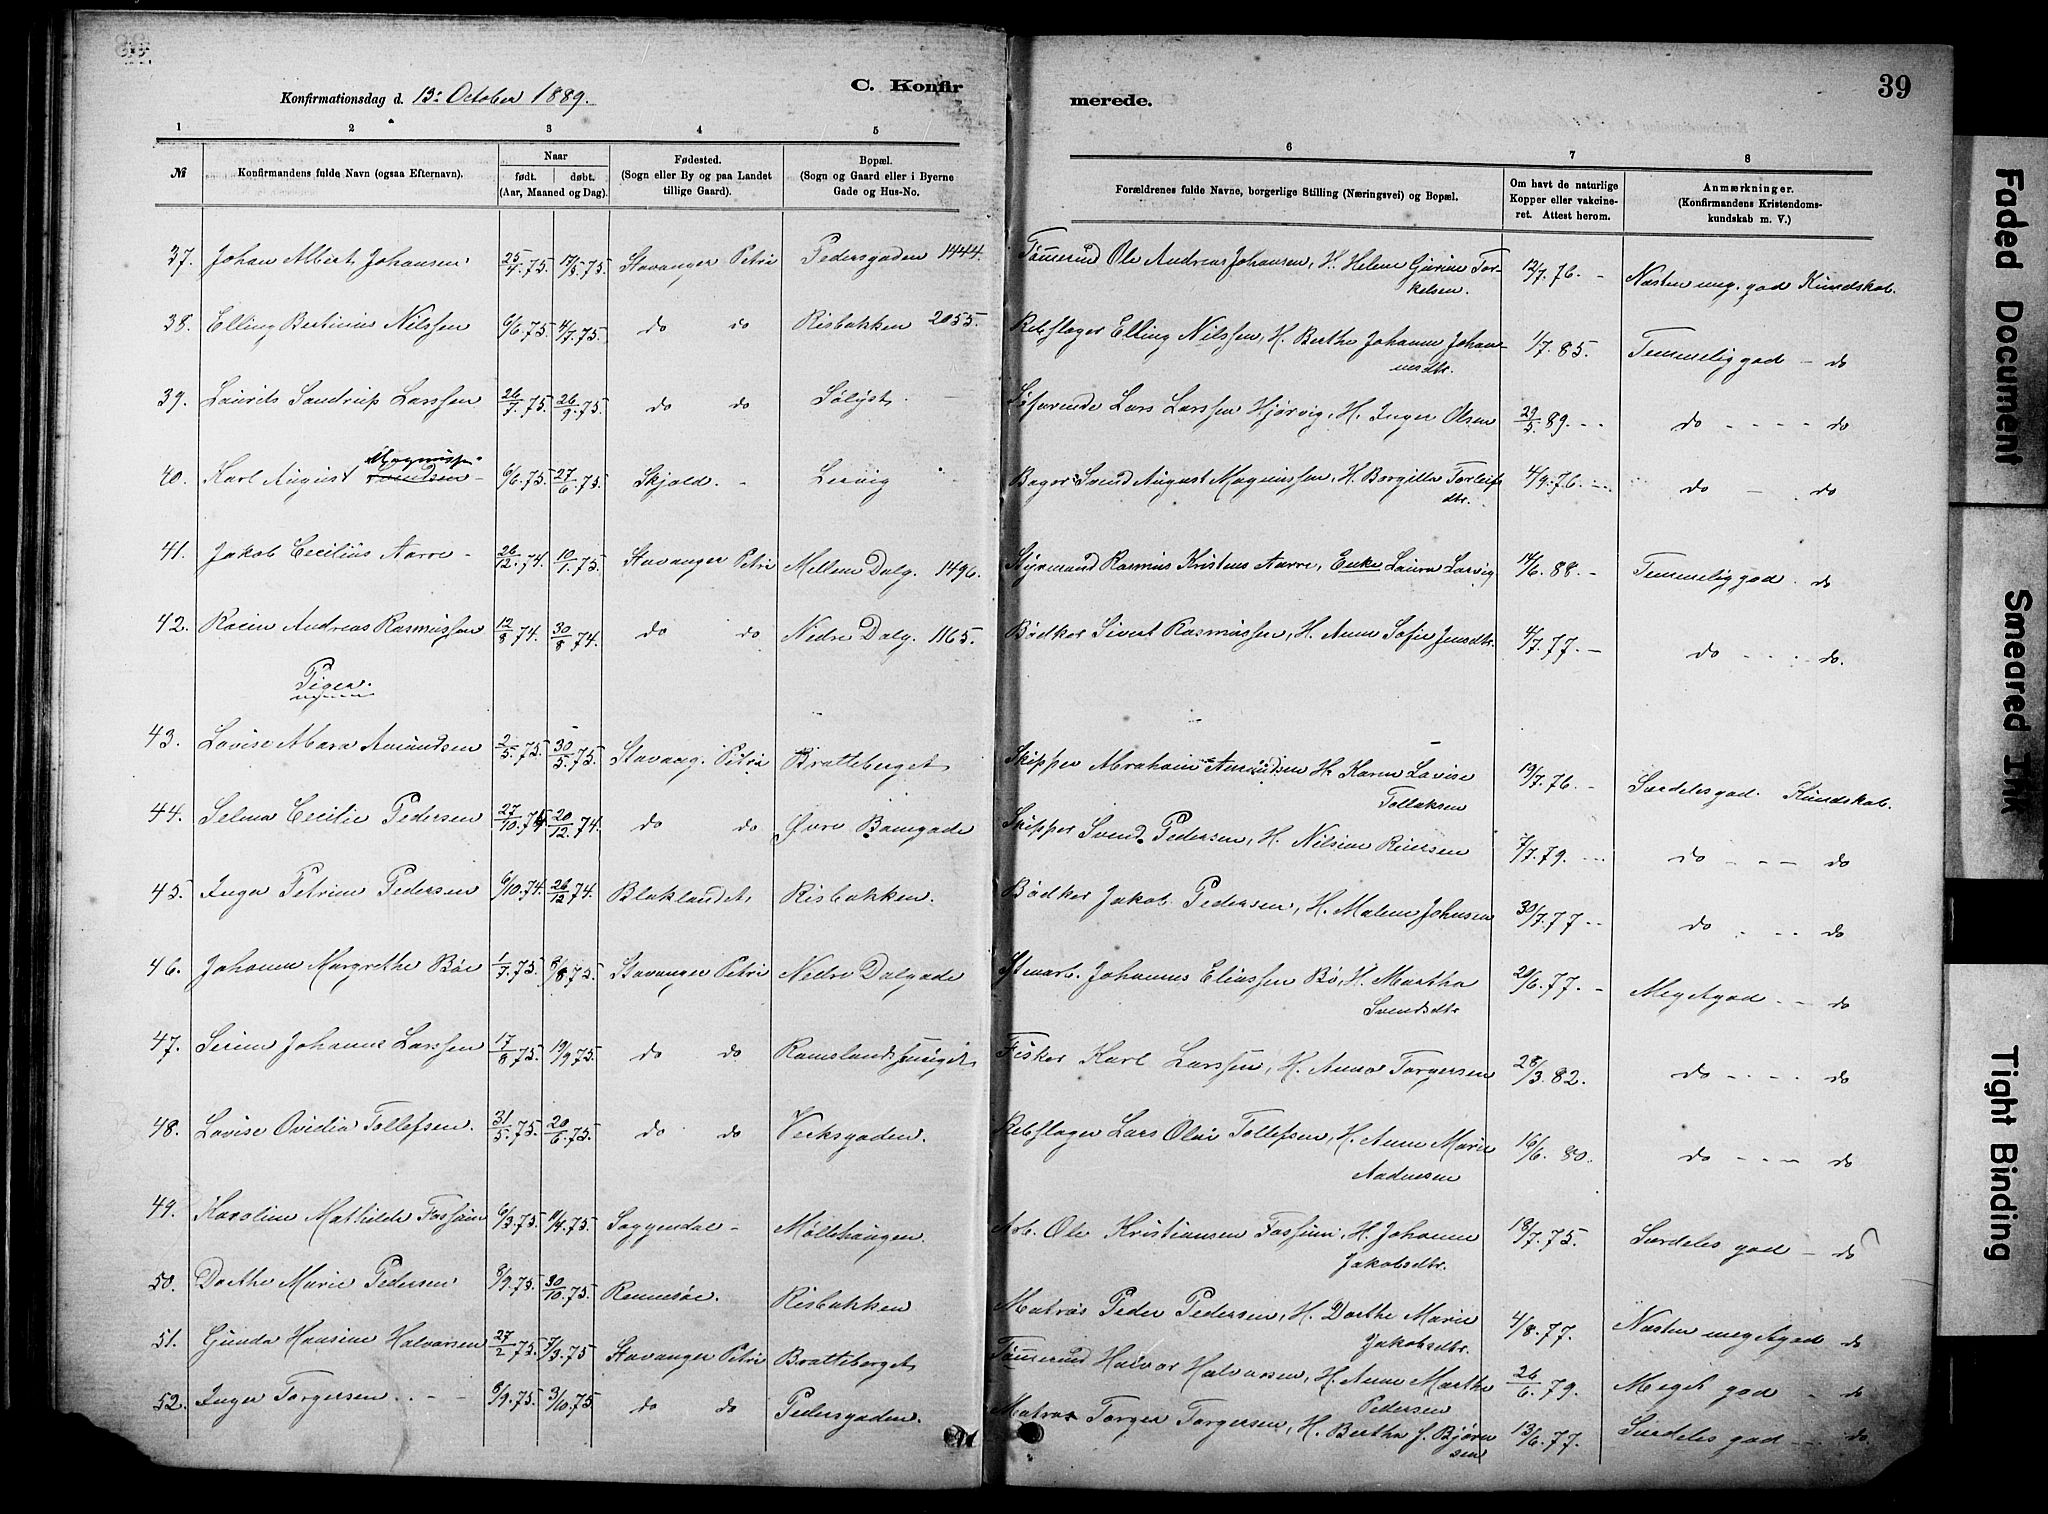 Konfirmationsdag d. 13: October 1889.
C. Konfirmerede.
39
1 2 3 4 5 6 7 8
№ | Konfirmandens fulde Navn (ogsaa Efternavn). | Naar født. døbt. (Aar, Maaned og Dag). | Fødested. (Sogn eller By og paa Landet tillige Gaard). | Bopæl. (Sogn og Gaard eller i Byerne Gade og Hus-No. | Forældrenes fulde Navne, borgerlige Stilling (Næringsvei) og Bopæl. | Om havt de naturlige Kopper eller vakcineret. Attest herom. | Anmærkninger. (Konfirmandens Kristendomskundskab m. V.)
37. Johan Albert Johansen | 25/4.75. | 17/5.75 | Stavanger Petri | Pedersgaden 1444. | Tømmermd Ole Andreas Johansen, H. Helene Gurine Torkelsen. | 12/7.76. - | Næsten meg. god Kundskab.
38. Elling Bertinius Nilssen | 6/6.75 | 4/7.75. | do do | Risbakken 2055. | Rebslager Elling Nilssen, H. Berthe Johanne Johannesdtr. | 1/7.85. | Temmelig god - do
39. Laurits Sandrup Larssen | 26/7.75 | 26/9.75. | do do | Sølyst. | Søfarende Lars Larssen Hjørvig, H. Inger Olsen | 29/5.89. | do do
40. Karl August Svendsen Magnussen | 6/6.75 | 27/6.75. | Skjold. | Lervig | Bager Svend August Magnussen, H. Borgilla Torleifsdtr. | 4/9.76. | do do
41. Jakob Cecilius Aarre | 26/12.74. | 10/1.75. | Stavanger Petri | Mellem Dalg. 1496. | Styrmand Rasmus Kristens Aarre, Enke Laura Larvig | 14/6.88 - | Temmelig god. do
42. Andreas Rasmussen | 12/8.74. | 30/8.74. | do do | Nedre Dalg. 1165. | Bødker Sivert Rasmussen, H. Anne Sofie Jensdtr. | 4/7.77. - | do do.
Piger.
43. Lovise Abara Amundsen | 2/5.75. | 30/5.75. | Stavang. Petri | Bratteberget | Skipper Abraham Amundsen H. Karen Lovise Tollaksen | 19/7.76. - | Særdeles god. Kundskab.
44. Selma Cecilie Pedersen | 27/10.74 | 20/12.74. | do do | Øvre Bangade | Skipper Svend Pedersen, H. Nilsine Reiersen | 7/7.79. | do do
45. Inger Petrine Pedersen | 6/10.74. | 26/12.74. | Buklandet | Risbakken. | Bødker Jakob Pedersen, H. Malene Johnsen | 30/7.77 | do do
46. Johanne Margrethe Bøe | 1/7.75. | 8/8.75. | Stavanger Petri | Nedre Dalgade | Stenarb. Johannes Eliassen Bø, H. Martha Svendsdtr | 29/6.77. - | Meget god. do
47. Serine Johanne Larssen | 17/8.75. | 19/9.75. | do do | Ramslandsmuget | Fisker Karl Larssen, H. Anna Torgersen | 28/3.82. | do do
48. Lovise Ovidia Tollefsen. | 31/5.75. | 20/6.75. | do do | Verksgaden. | Rebslager Lars Olai Tollefsen, H. Anne Marie Aadnesen | 16/6.80. | do do
49. Karoline Mathilde Fossum | 6/3.75. | 11/4.75. | Soggendal - | Møllehaugen. | Arb. Ole Kristiansen Fossum, H. Johanne Jakobsdtr. | 18/7.75. | Særdeles god - do
50. Dorthe Marie Pedersen | 8/9.75. | 30/10.75. | Rennesøe. | Risbakken | Matros Peder Pedersen, H. Dorthe Marie Jakobsdtr. | 4/8.77. | Næsten meget god do
51. Gunda Hansine Halvorsen | 27/2.75. | 7/3.75 | Stavanger Petri | Bratteberget | Tømmermd Halvor Halvorsen, H. Anne Marthe Pedersen | 26/6.79. | Meget god - do
52. Inger Torgersen | 8/9.75. | 3/10.75 | do do | Pedersgaden. | Matros Torger Torgersen, H. Bertha S. Bjørnsen | 13/6.77. | Særdeles god do.
Faded Document
Smeared Ink
Tight Binding